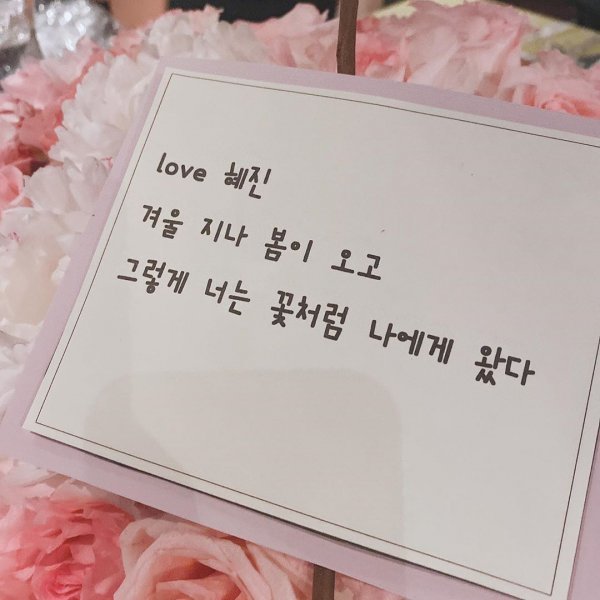 love 혜진
겨울 지나 봄이 오고
그렇게 너는 꽃처럼 나에게 왔다